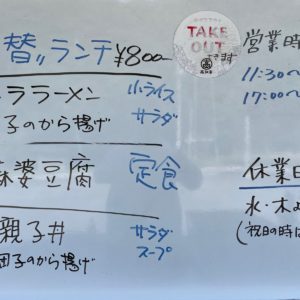 替〃ランチ ¥800
ラーメン 小ライス
サラダ
子のから揚げ
麻婆豆腐 定食
親子丼 サラダ
スープ
団子のから揚げ
TAKE
OUT
できます
営業時
11:30〜
17:00〜
休業日
水・木
(祝日の時は